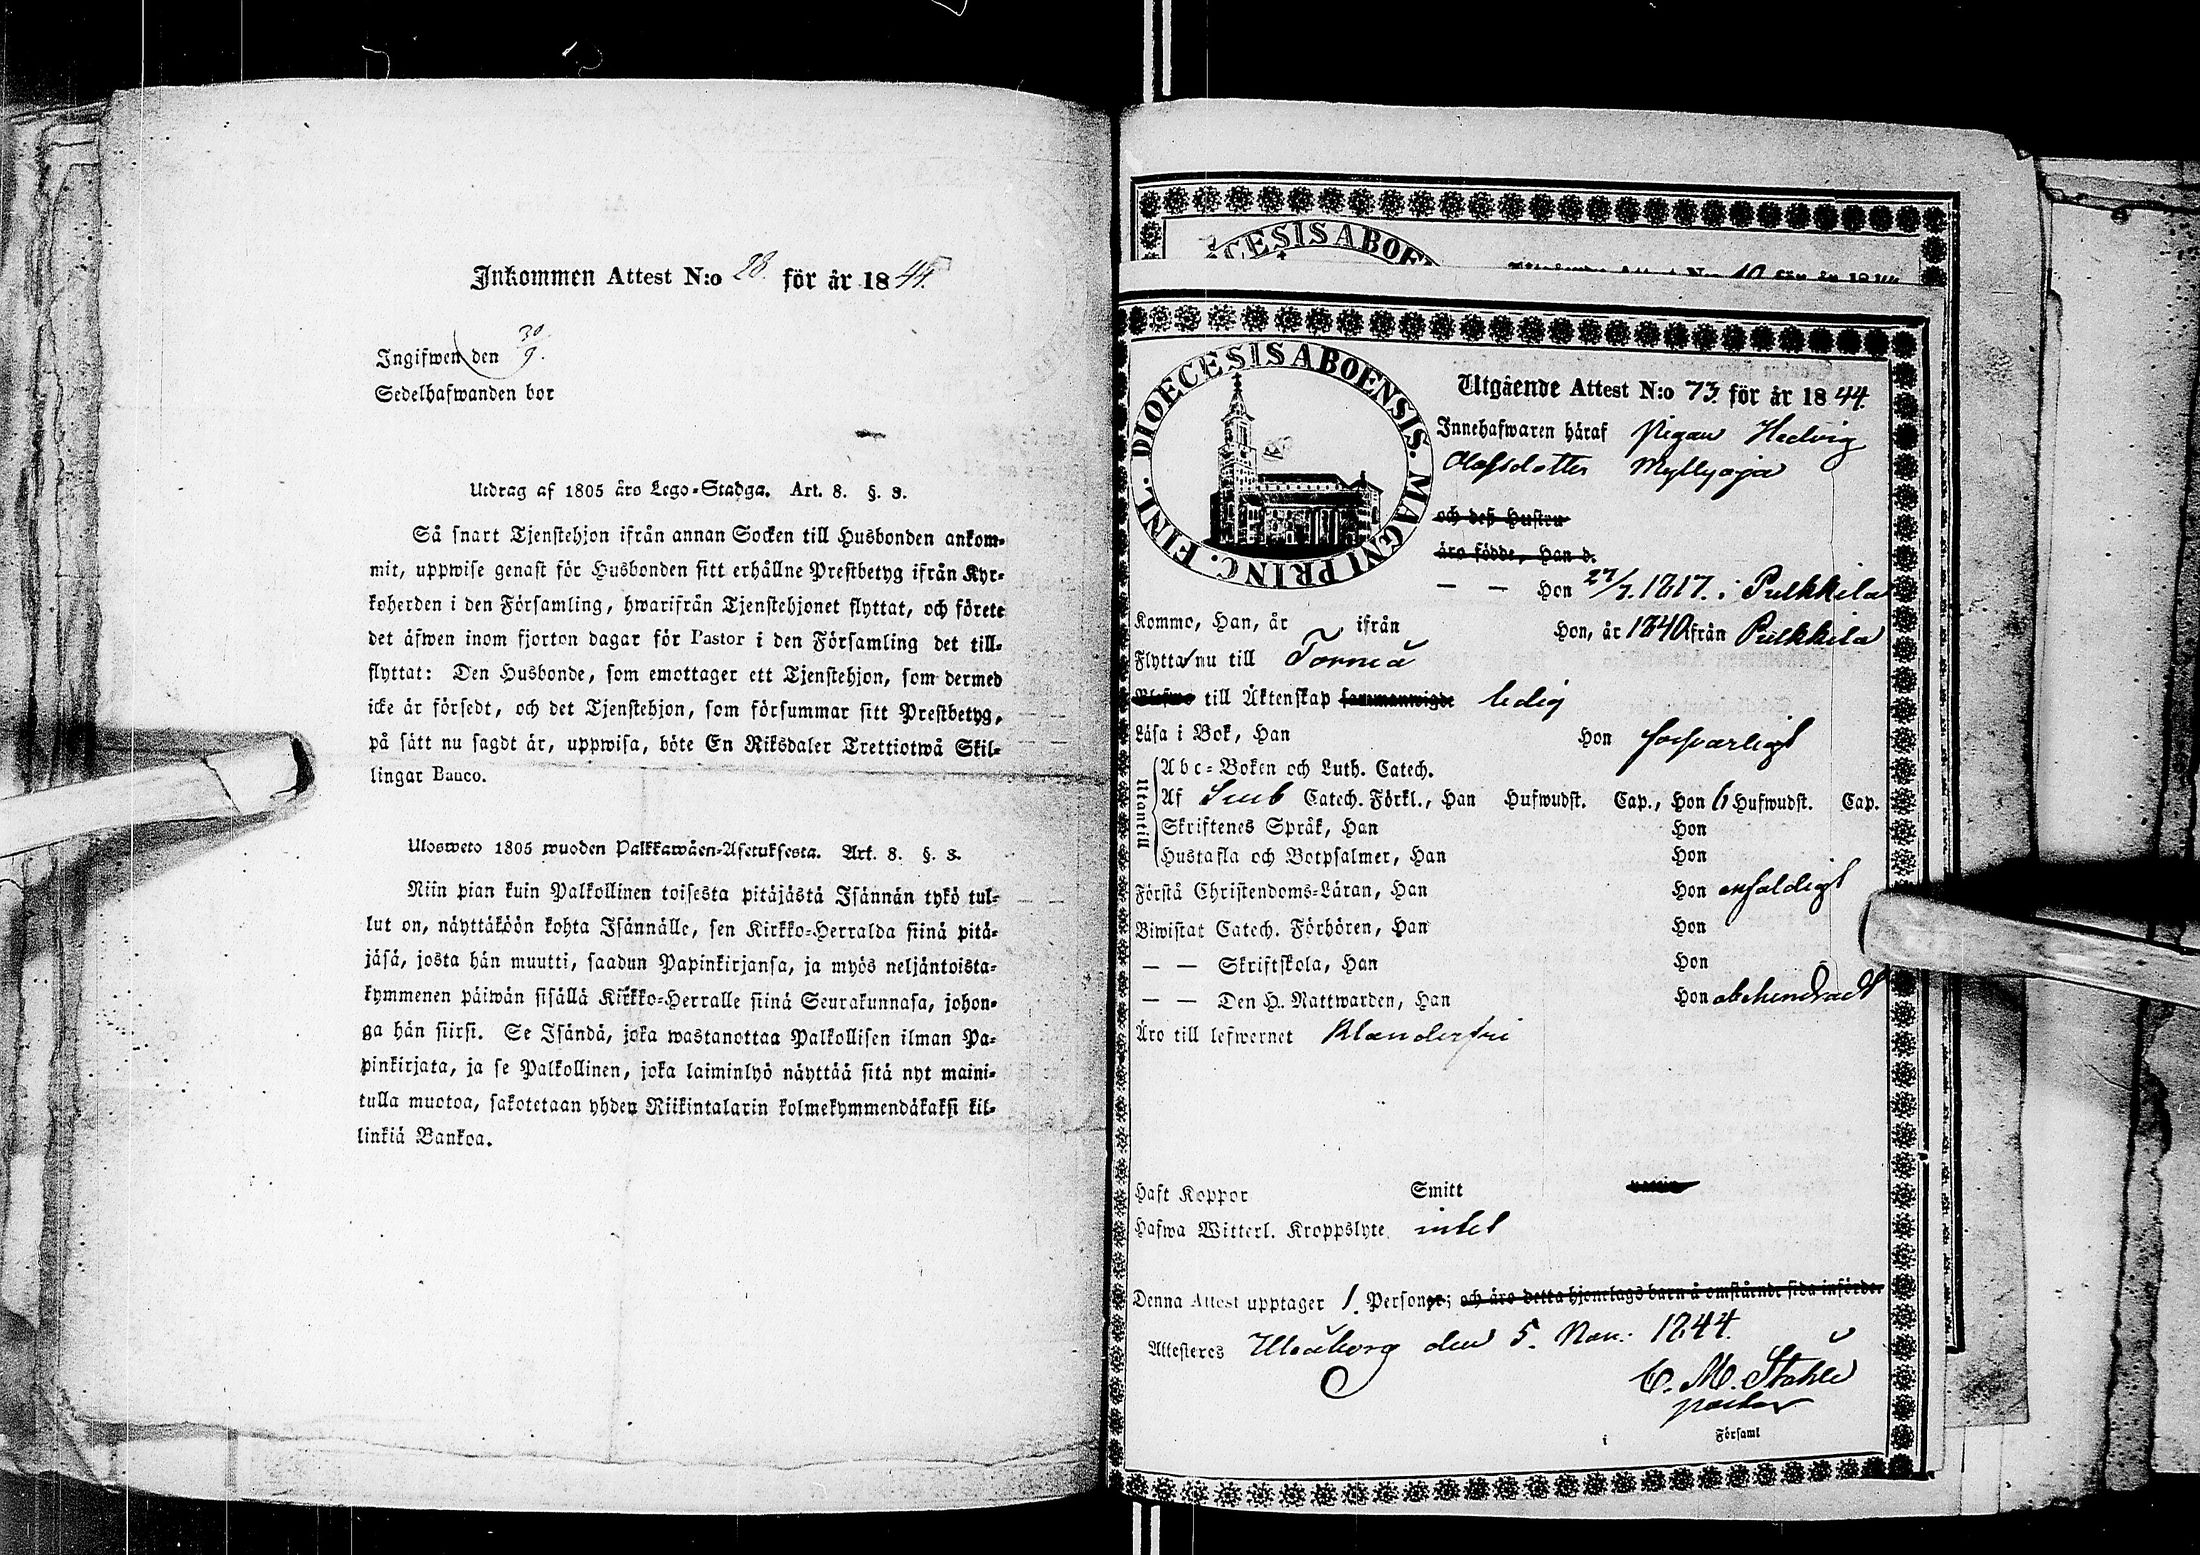 Inkommen Attest N:o 28. för år 1844.
Ingifwen den 30/9.
Sedelhafwanden bor
Utdrag af 1805 års Lego-Stadga. Art. 8. §. 3.
Så snart Tjenstehjon ifrån annan Socken till Husbonden ankom-
mit, uppwise genast för Husbonden sitt erhållne Prestbetyg ifrån Kyr-
koherden i den Församling, hwarifrån Tjenstehjonet flyttat, och förete
det äfwen inom fjorton dagar för Pastor i den Församling det till-
flyttat: Den Husbonde, som emottager ett Tjenstehjon, som dermed
icke är försedt, och det Tjenstehjon, som försummar sitt Prestbetyg,
på sätt nu sagdt är, uppwisa, böte En Riksdaler Trettiotwå Skil-
lingar Banco.
Ulosweto 1805 wuoden Palkkawäen-Asetuksesta. Art. 8. §. 3.
Niin pian kuin Palkollinen toisesta pitäjästä Isännän tykö tul-
lut on, näyttäköön kohta Isännälle, sen Kirkko-Herralda siinä pitä-
jäsä, josta hän muutti, saadun Papinkirjansa, ja myös neljäntoista-
kymmenen päiwän sisällä Kirkko-Herralle siinä Seurakunnasa, johon-
ga hän siirsi. Se Isändä, joka wastanottaa Palkollisen ilman Pa-
pinkirjata, ja se Palkollinen, joka laiminlyö näyttää sitä nyt maini-
tulla muotoa, sakotetaan yhden Riikintalarin kolmekymmendäkaksi kil-
linkiä Bankoa.
CESIS ABOE
N:o 10 för år 1844
DIOECESIS ABOENSIS. MAGNI PRINC. FINL.
Utgående Attest N:o 73. för år 1844.
Innehafwaren häraf Pigan Hedvig
Olofsdotter Myllyoja
och deß Hustru
äro födde, Han d.
— — Hon 27/7. 1817. i Pulkkila
Komme, Han, år ifrån Hon, år 1840 ifrån Pulkkila
Flytta nu till Torneå
till Äktenskap sammanwigde ledig
Läsa i Bok, Han Hon försvarligt
Utantill
Abc-Boken och Luth. Catech.
Af Sveb Catech. Förkl., Han Hufwudst. Cap., Hon 6 Hufwudst. Cap.
Skriftenes Språk, Han Hon
Hustafla och Botpsalmer, Han Hon
Förstå Christendoms-Läran, Han Hon enfaldigt
Biwistat Catech. Förhören, Han Hon
— — Skriftskola, Han Hon
— — Den H. Nattwarden, Han Hon obehindradt
Äro till lefwernet Klanderfri
Haft Koppor Smitt
Hafwa Witterl. Kroppslyte intet
Denna Attest upptager 1. Personer; och äro detta hjonelags barn å omstående sida införde.
Attesteres Uleåborg den 5. Nov: 1844.
C. M. Ståhle
pastor
i Församl